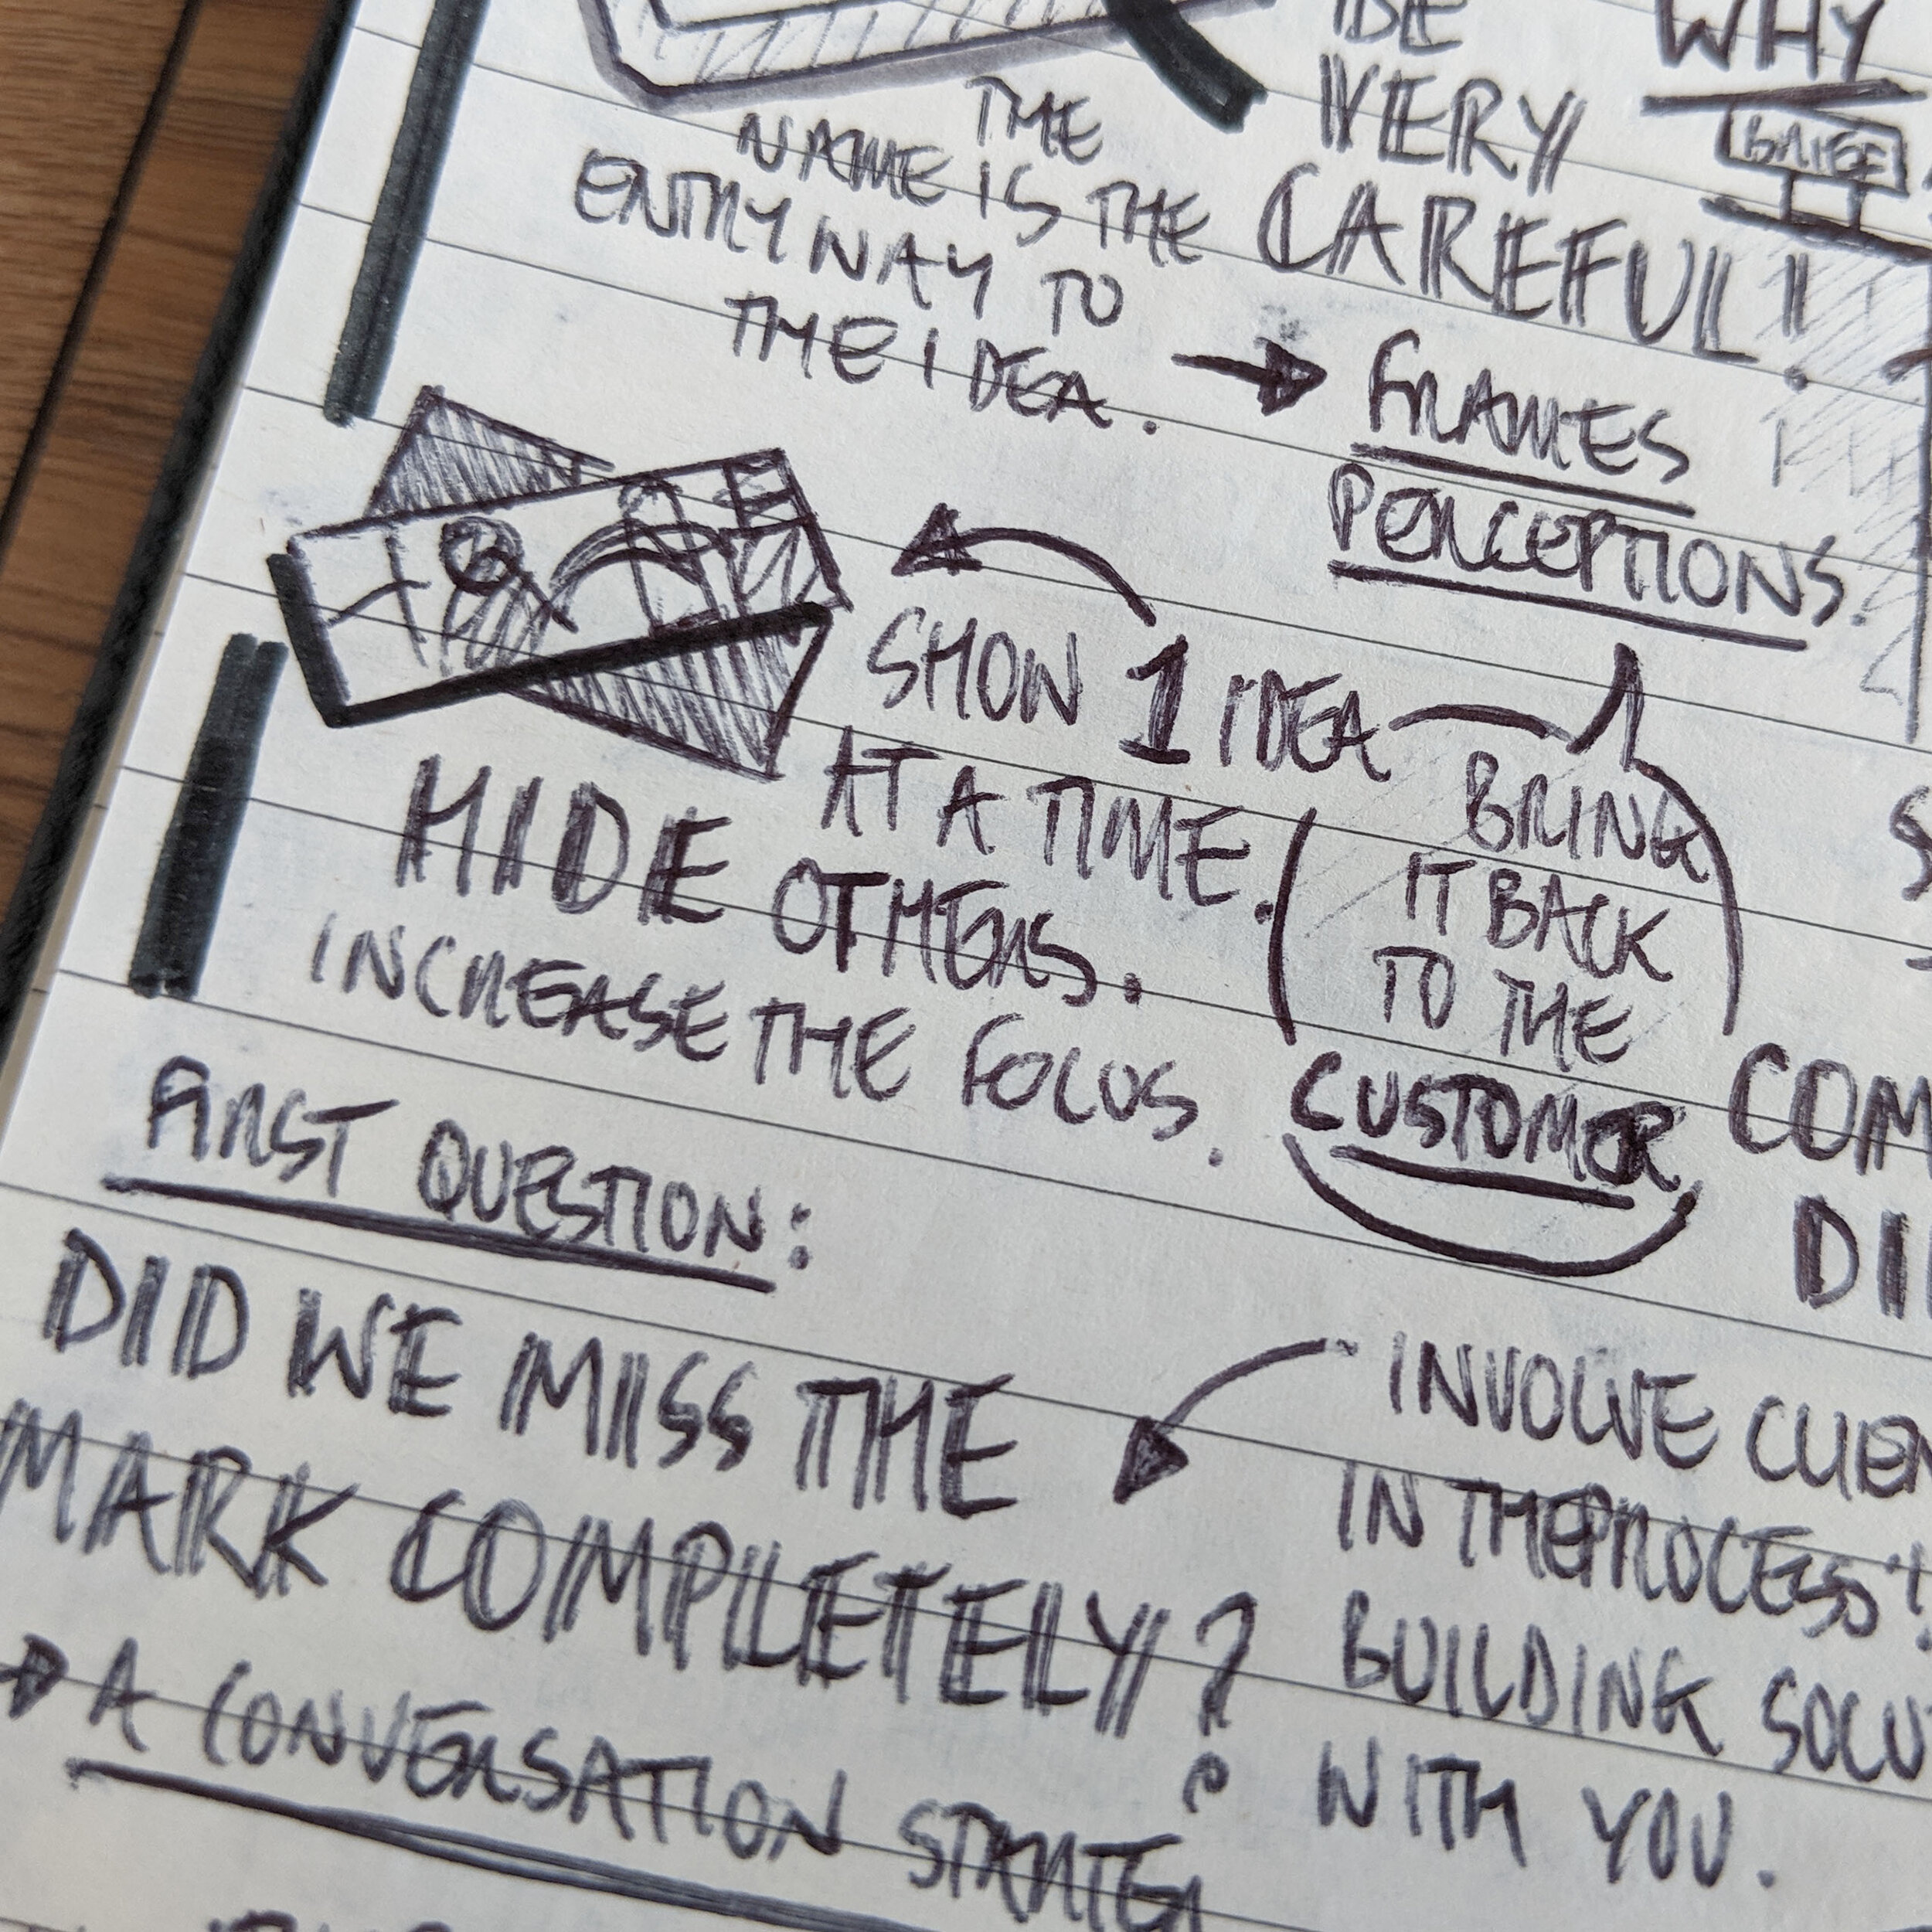 BE
VERY
CAREFUL!
WHY
THE
NAME IS THE
ENTRYWAY TO
THE IDEA.
FRAMES
PERCEPTIONS.
SHOW 1 IDEA
AT A TIME.
HIDE OTHERS.
INCREASE THE FOCUS.
BRING
IT BACK
TO THE
CUSTOMER
COM
DI
FIRST QUESTION:
DID WE MISS THE
MARK COMPLETELY?
A CONVERSATION STARTER
INVOLVE CLIEN
IN THE PROCESS
BUILDING SOLU
WITH YOU.